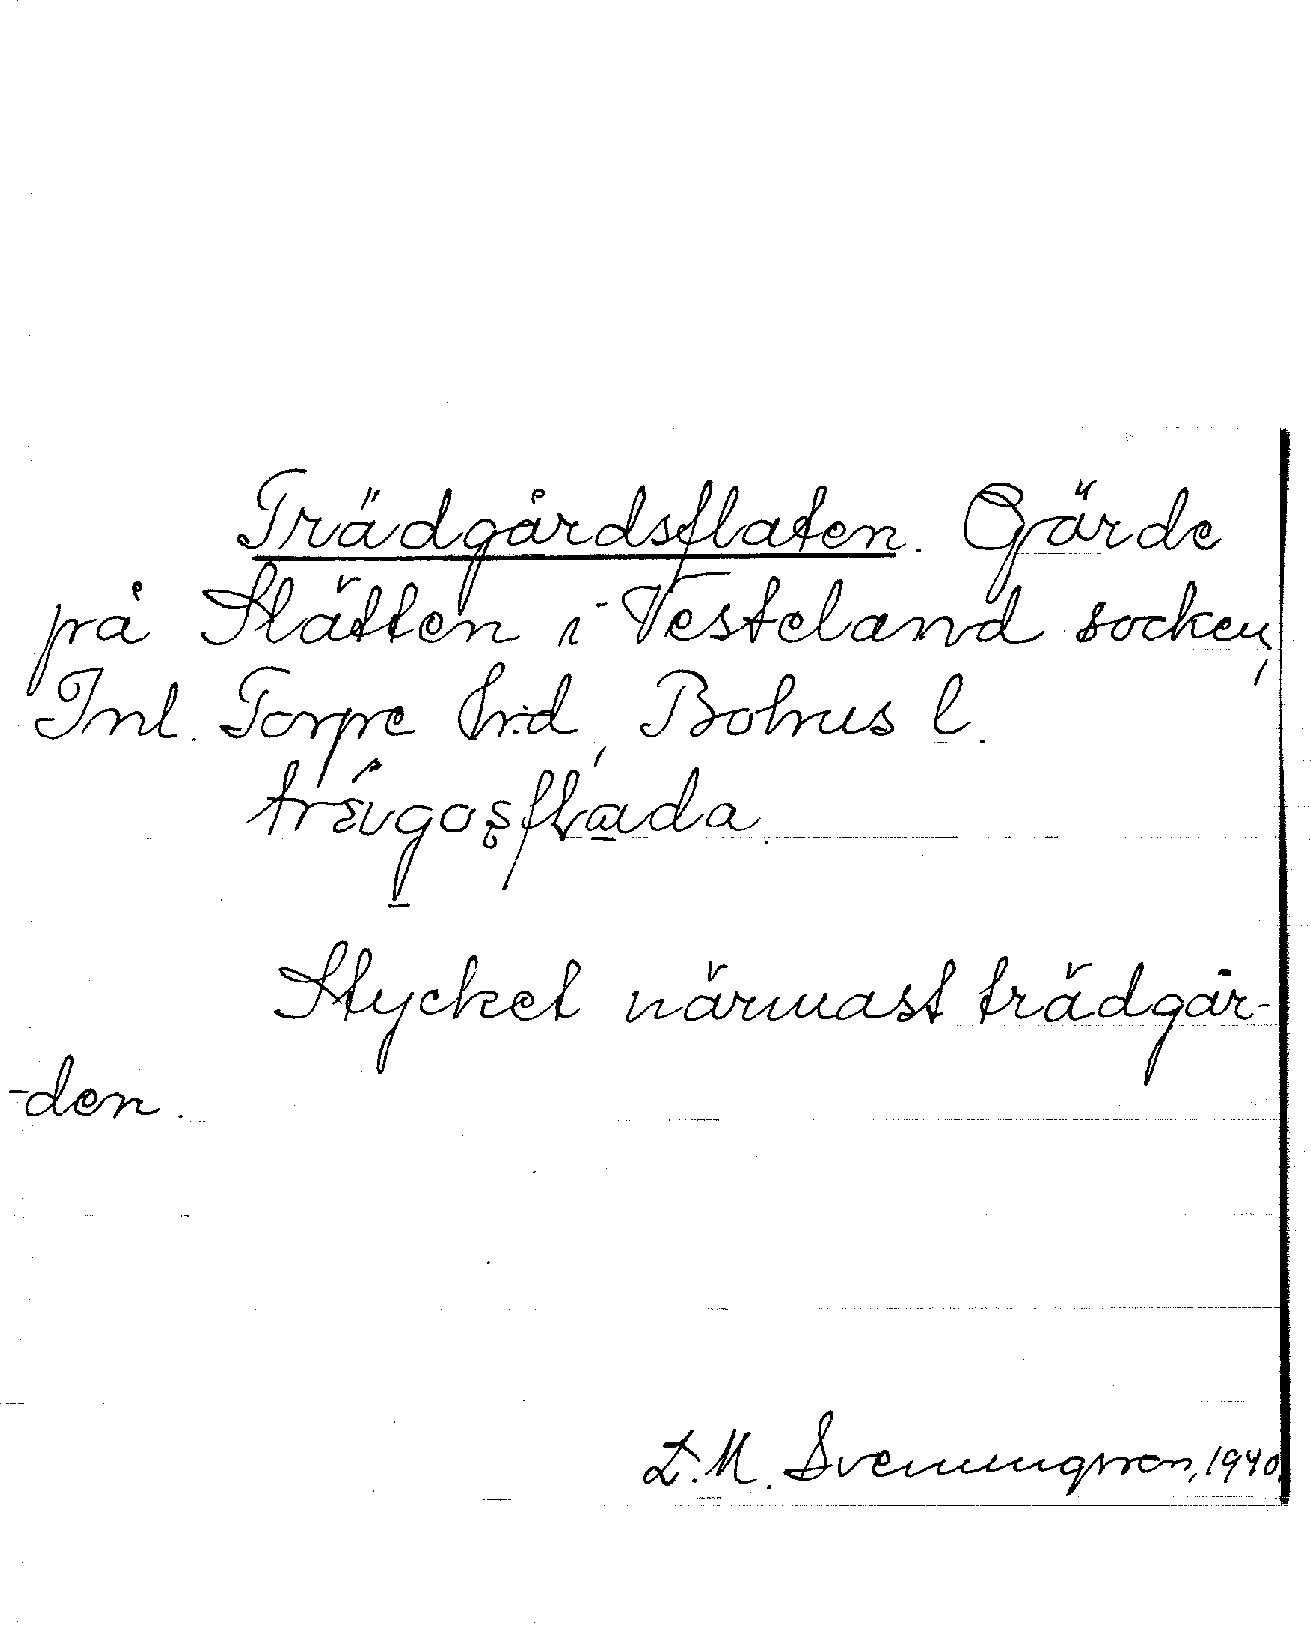 Trädgårdsflaten. Gärde
på Slätten i Vesteland socken,
Inl. Torpe hrd, Bohus l.
Stycket närmast trädgår-
-den.
D.M. Svenningsson, 1940.